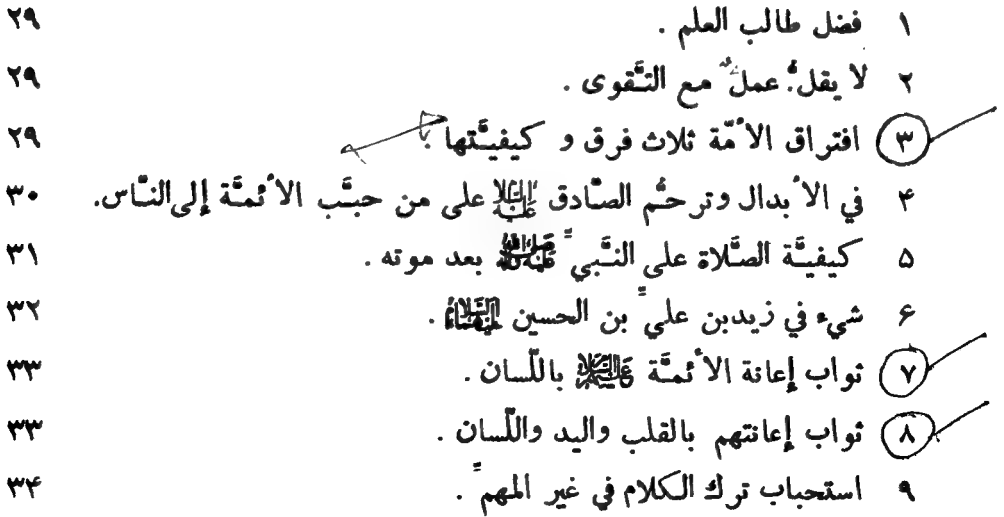 ١ فضل طالب العلم . ٢٩
٢ لا يقلُّ عملٌ مع التَّقوى . ٢٩
٣ افتراق الأُمّة ثلاث فرق و كيفيَّتها . ٢٩
۴ في الأبدال وترحُّم الصَّادق عليه السلام على من حبَّب الأئمَّة إلى النَّاس. ٣٠
۵ كيفيَّة الصَّلاة على النَّبيِّ صلى الله عليه وآله بعد موته . ٣١
۶ شيء في زيد بن عليِّ بن الحسين عليهما السلام . ٣٢
٧ ثواب إعانة الأئمَّة عليهم السلام باللّسان . ٣٣
٨ ثواب إعانتهم بالقلب واليد واللّسان . ٣٣
٩ استحباب ترك الكلام في غير المهمِّ . ٣۴